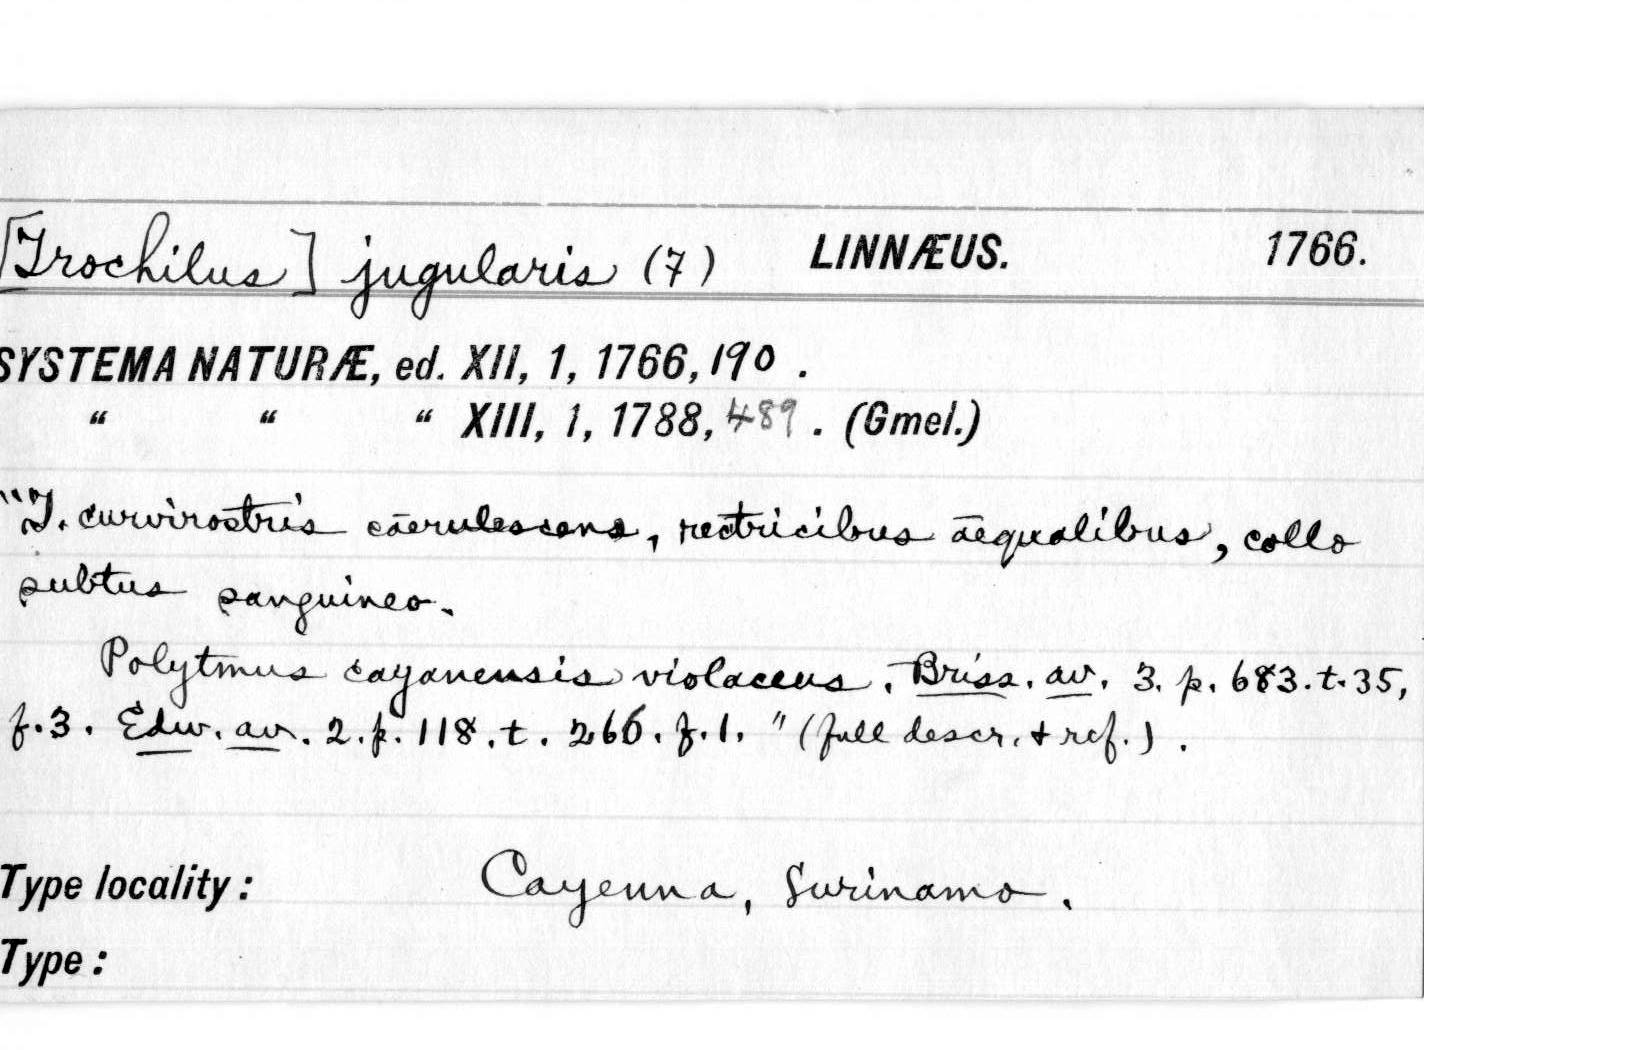 [Trochilus] jugularis (7) LINNÆUS. 1766.
SYSTEMA NATURÆ, ed. XII, 1, 1766, 190 .
“ “ “ XIII, 1, 1788, 489 . (Gmel.)
"T. curvirostris cāerulescens, rectricibus āequalibus, collo
subtus sanguineo.
Polytmus cayanensis violaceus. Briss. av. 3. p. 683. t. 35,
f. 3. Edw. av. 2. p. 118. t. 266. f. 1. " (full descr. & ref.) .
Type locality : Cayenna, Surinamo .
Type :